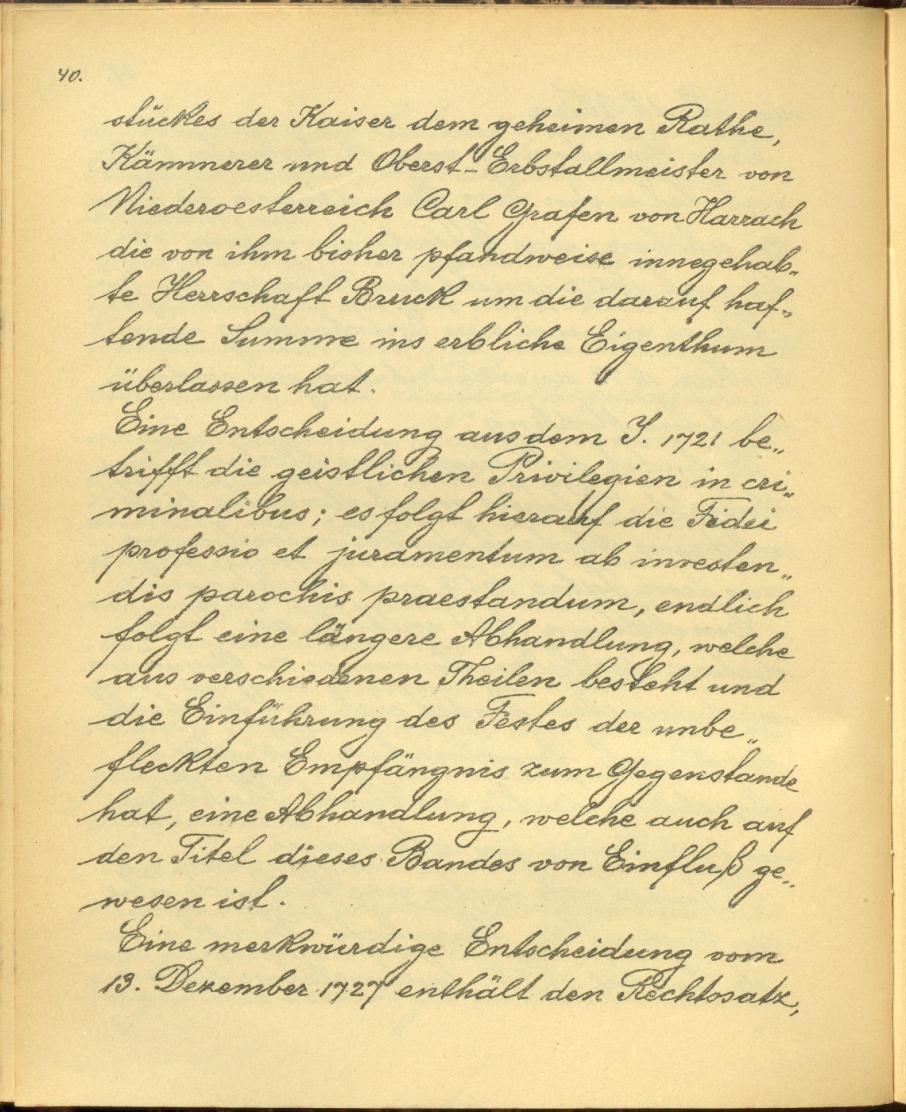 40.
stückes der Kaiser dem geheimen Rathe,
Kämmerer und Oberst-Erbstallmeister von
Niederoesterreich Carl Grafen von Harrach
die von ihm bisher pfandweise innegehab„
te Herrschaft Bruck um die darauf haf„
tende Summe ins erbliche Eigenthum
überlassen hat.
Eine Entscheidung aus dem J. 1721 be„
trifft die geistlichen Privilegien in cri„
minalibus; es folgt hierauf die Fidei
professio et juramentum ab investen„
dis parochis praestandum, endlich
folgt eine längere Abhandlung, welche
aus verschiedenen Theilen besteht und
die Einführung des Festes der unbe„
fleckten Empfängnis zum Gegenstande
hat, eine Abhandlung, welche auch auf
den Titel dieses Bandes von Einfluß ge„
wesen ist.
Eine merkwürdige Entscheidung vom
13. Dezember 1727 enthält den Rechtssatz,